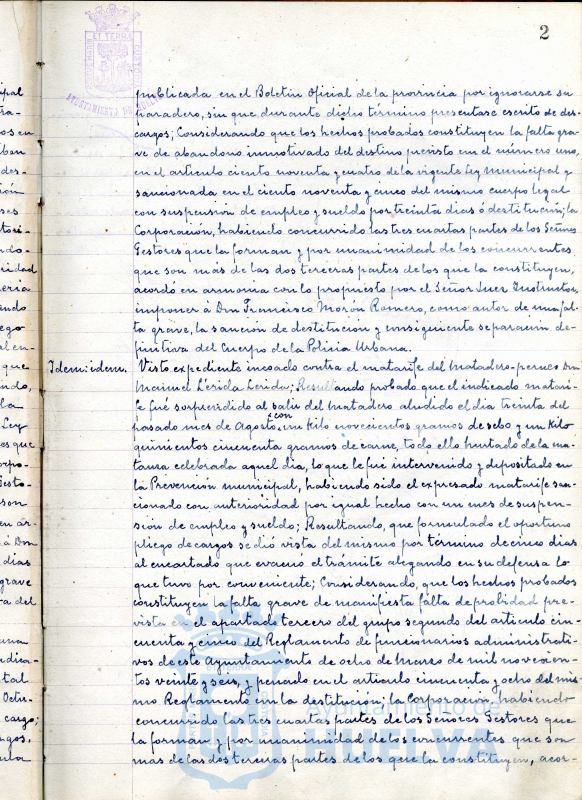 2
publicada en el Boletin Oficial de la provincia por ignorarse su
paradero, sin que durante dicho término presentase escrito de des-
cargos; Considerando que los hechos probados constituyen la falta gra-
ve de abandono inmotivado del destino previsto en el número uno,
en el articulo ciento noventa y cuatro de la vigente Ley municipal y
sancionada en el ciento noventa y cinco del mismo cuerpo legal
con suspensión de empleo y sueldo por treinta dias ó destitución; la
Corporación, habiendo concurrido las tres cuartas partes de los Señores
Gestores que la forman y por unanimidad de los concurrentes
que son mas de las dos terceras partes de los que la constituyen,
acordó en armonia con lo propuesto por el Señor Juez Instructor,
imponer á Don Francisco Morón Romero, como autor de una fal-
ta grave, la sanción de destitución y consiguiente separación de-
finitiva del Cuerpo de la Policia Urbana.
Idem: idem.
Visto expediente incoado contra el matarife del matadero
Don
Manuel Lérida Lerida; Resultando probado que el indicado matari-
fe fué sorprendido al salir del matadero aludido el dia treinta del
pasado mes de Agosto, con un kilo novecientos gramos de sebo y un kilo
quinientos cincuenta gramos de carne, todo ello hurtado de la ma-
tanza celebrada aquel dia, lo que le fué intervenido y depositado en
la Prevención municipal, habiendo sido el expresado matarife san-
cionado con anterioridad por igual hecho con un mes de suspen-
sión de empleo y sueldo; Resultando, que formulado el oportuno
pliego de cargos se dió vista del mismo por término de cinco dias
al encartado que evacuó el trámite alegando en su defensa lo
que tuvo por conveniente; Considerando, que los hechos probados
constituyen la falta grave de manifiesta falta de probidad pre-
vista en el apartado tercero del grupo segundo del articulo cin-
cuenta y cinco del Reglamento de funcionarios administrati-
vos de este Ayuntamiento de ocho de Marzo de mil novecien-
tos veinte y seis, y penado en el articulo cincuenta y ocho del mis-
mo Reglamento con la destitución; la Corporación, habiendo
concurrido las tres cuartas partes de los Señores Gestores que
la forman y por unanimidad de los concurrentes que son
mas de las dos terceras partes de los que la constituyen, acor-
Ayuntamiento de
HUELVA